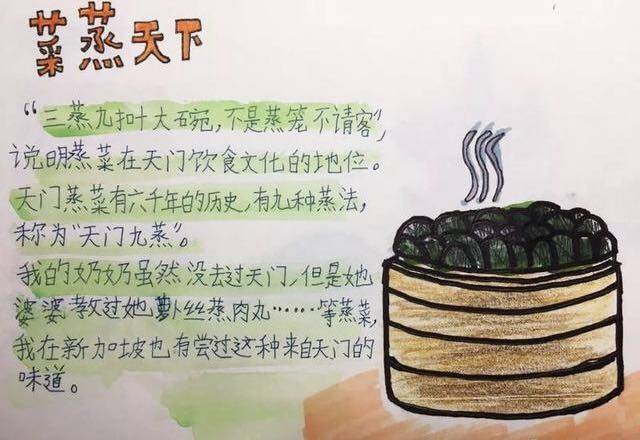 菜蒸天下
“三蒸九扣十大碗，不是蒸笼不请客”，
说明蒸菜在天门饮食文化的地位。
天门蒸菜有六千年的历史，有九种蒸法，
称为“天门九蒸”。
我的奶奶虽然没去过天门，但是她
婆婆教过她萝卜丝蒸肉丸……等蒸菜，
我在新加坡也有尝过这种来自天门的
味道。